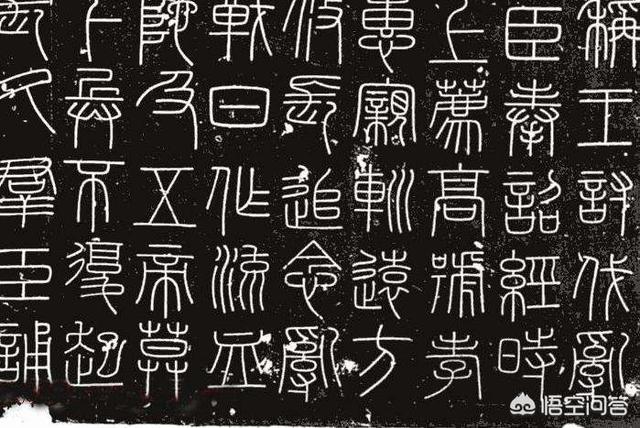 稱王討伐亂
臣奉詔經時
上薦高號孝
惠親巡遠方
攸長追念亂
戰日作流血
陀及五帝莫
下兵不復起
長久羣臣誦
悟空问答